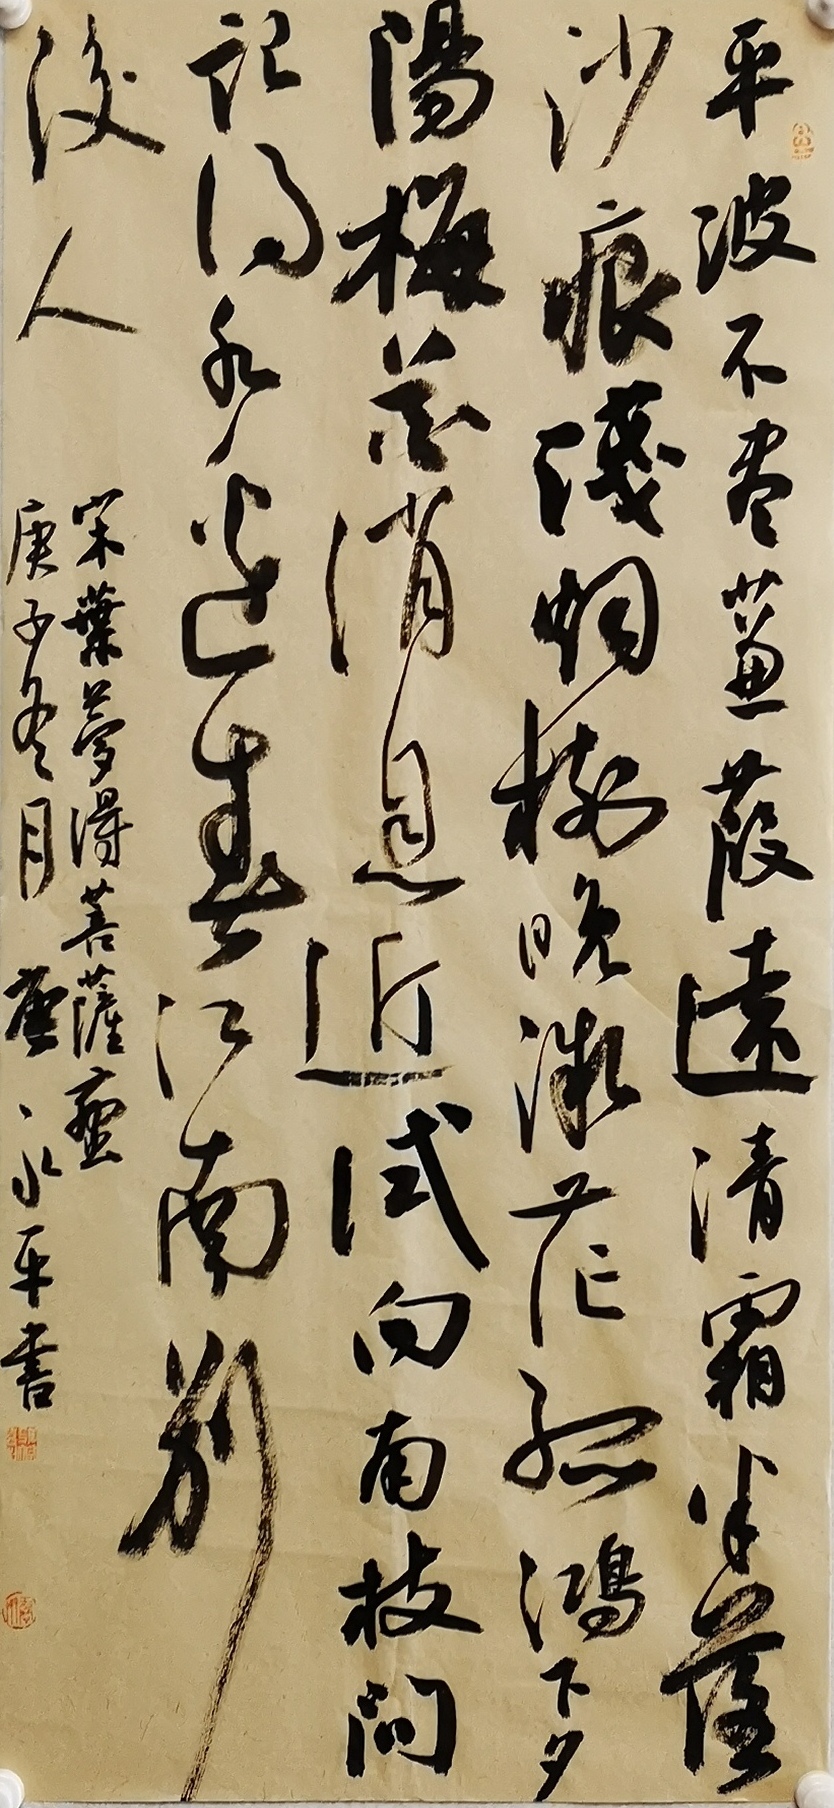 平波不盡蒹葭遠清霜半落
沙痕淺烟樹晚微茫孤鴻下夕
陽梅花消息近試向南枝問
記得水邊春江南別
後人
宋葉夢得菩薩蠻
庚子冬月 永平書